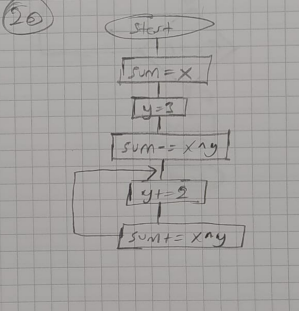 26
Start
sum = x
y=3
sum-= x^y
y+= 2
sum+= x^y